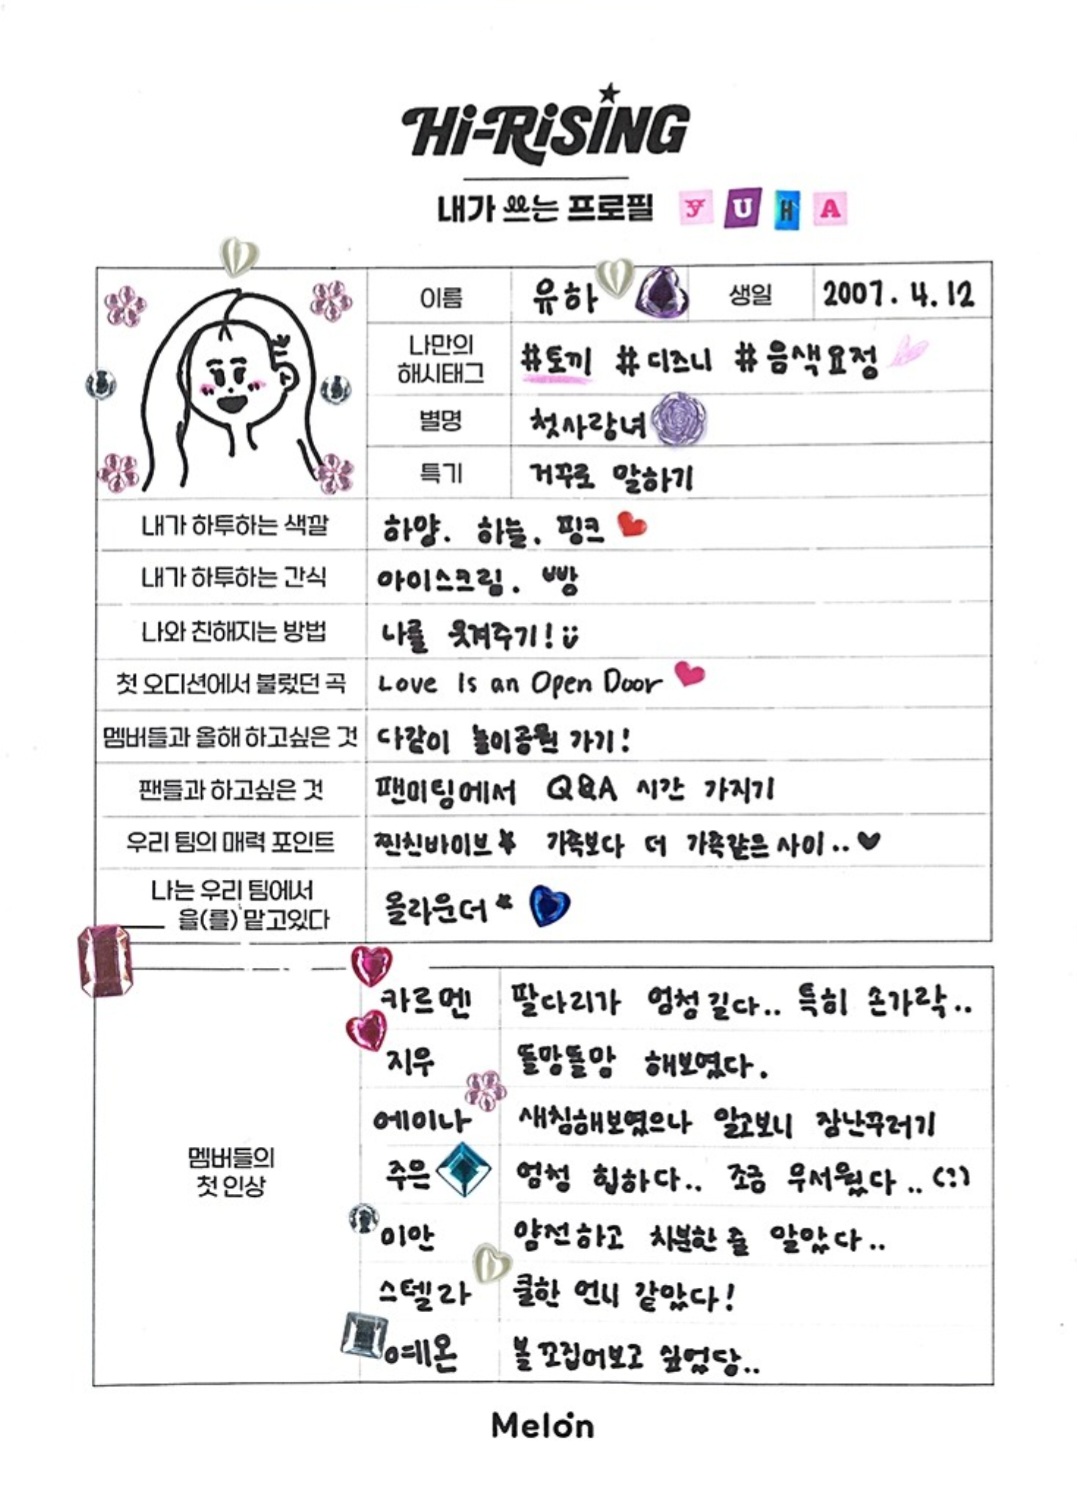 Hi-RiSING
내가 쓰는 프로필 YUHA
이름 유하 생일 2007. 4. 12
나만의
해시태그 #토끼 #디즈니 #음색요정
별명 첫사랑녀
특기 거꾸로 말하기
내가 하투하는 색깔 하양. 하늘. 핑크
내가 하투하는 간식 아이스크림. 빵
나와 친해지는 방법 나를 웃겨주기!
첫 오디션에서 불렀던 곡 Love Is an Open Door
멤버들과 올해 하고싶은 것 다같이 놀이공원 가기!
팬들과 하고싶은 것 팬미팅에서 Q&A 시간 가지기
우리 팀의 매력 포인트 찐친바이브 가족보다 더 가족같은 사이..♥
나는 우리 팀에서
____ 을(를) 맡고있다 올라운더*
멤버들의
첫 인상
카르멘 팔다리가 엄청 길다.. 특히 손가락..
지우 똘망똘망 해보였다.
에이나 새침해보였으나 알고보니 장난꾸러기
주은 엄청 힙하다.. 조금 무서웠다.. (:)
이안 얌전하고 차분한 줄 알았다..
스텔라 쿨한 언니 같았다!
예온 볼 꼬집어보고 싶었당..
Melon